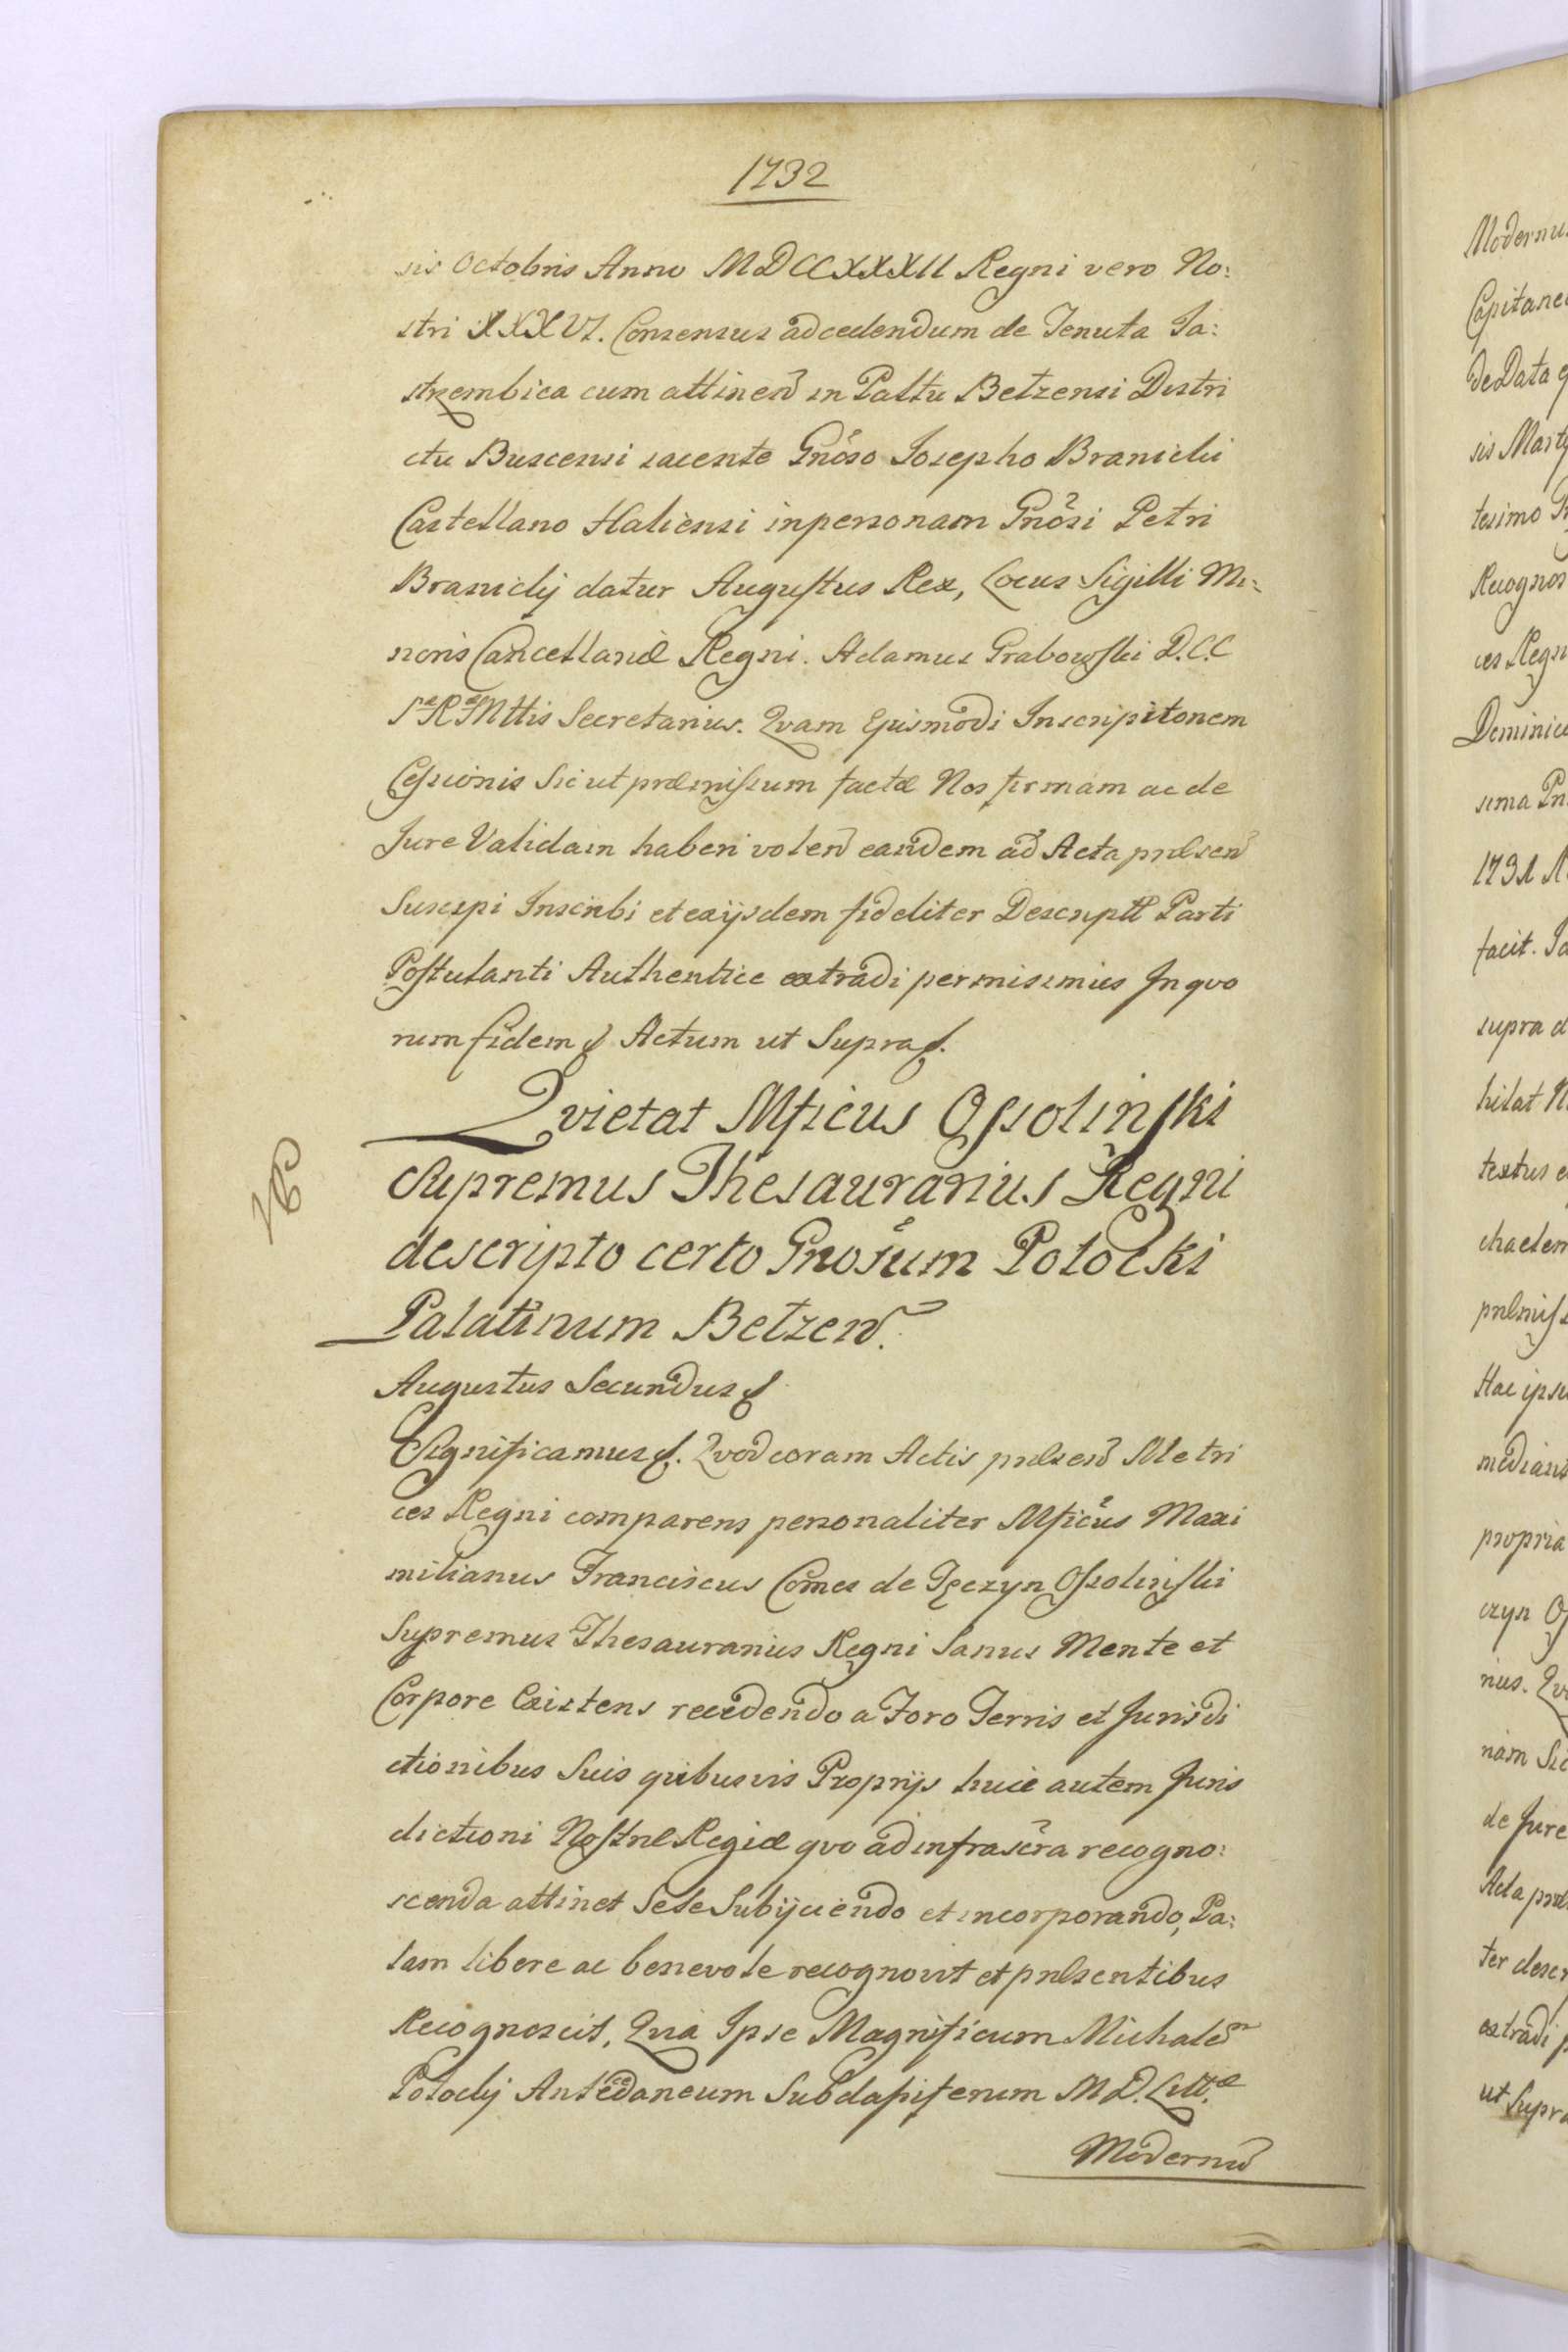 1732
sis Octobris Anno MDCCXXXII Regni vero No:
stri XXXVI. Consensus ad cedendum de Tenuta Ja:
strzembica cum attinen̄ in Pałtu Betzensi Distri
ctu Buscensi iacente Gnoso Josepho Branicki
Castellano Haliensi in personam Gnosi Petri
Branickij datur Augustus Rex, Locus Sigilli Mi:
noris Cancellariæ Regni. Adamus Grabowski D.C.C
S R Mttis Secretarius. Qvam Ejusmodi Inscripitonem
Cessionis Sic ut præmissum factæ Nos firmam ac de
Jure Validam haberi volen̄ eandem ad Acta præsen̄
Suscipi Inscribi et ex ijsdem fideliter Descriptt Parti
Postulanti Authentice extradi permisimus In qvo
rum fidem Actum ut Supra.
Qvietat Mficus Ossolinski
Supremus Thesaurarius Regni
descripto certo Gnosum Potocki
Palatinum Betzen̄.
NB
Augustus Secundus
Significamus. Qvod coram Actis præsen̄ Metri
ces Regni comparens personaliter Mficus Maxi
milianus Franciscus Comes de Tęczyn Ossolinski
Supremus Thesaurarius Regni Sanus Mente et
Corpore Existens recedendo a Foro Terris et Jurisdi
ctionibus Suis qvibusvis Proprijs huic autem Juris
dictioni Nostræ Regiæ qvo ad infrascra recogno:
scenda attinet Sese Subijciendo et incorporando, Pa:
lam libere ac benevole recognovit et præsentibus
Recognoscit, Qvia Ipse Magnificum Michaelem
Potockij Antecedaneum Subdapiferum M D. Litt.æ
Modernū
Modernu
Capitane
de Data
sis Mart
tesimo
Recognos
ces Regn
Dominic
sima
1731
facit.
supra d
hilat
textus
chaelem
præmiss
Hac ipsa
median
propria
czyn
rius.
nam Sic
de Jure
Acta præ
ter descr
extradi
ut Supra